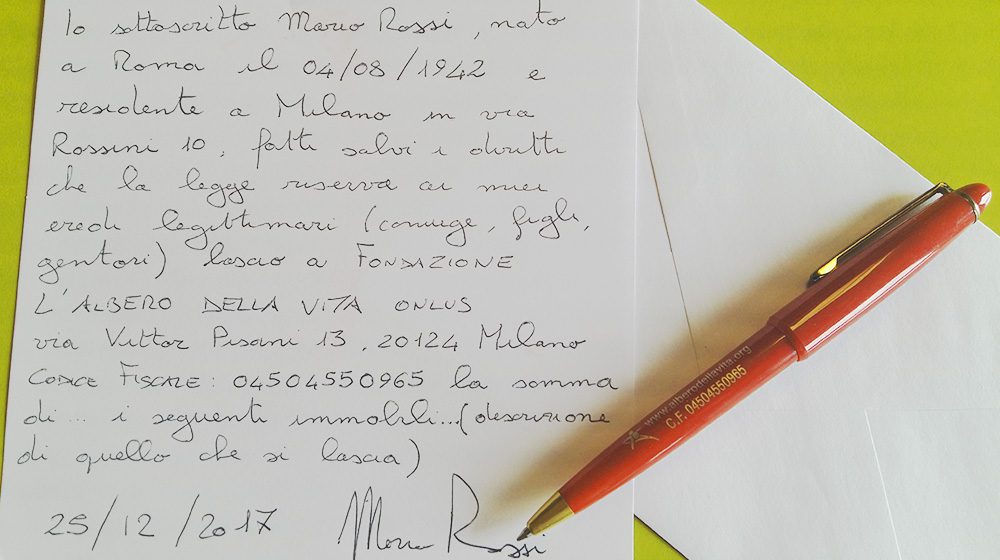 Io sottoscritto Mario Rossi, nato
a Roma il 04/08/1942 e
residente a Milano in via
Rossini 10, fatti salvi i diritti
che la legge riserva ai miei
eredi legittimari (coniuge, figli,
genitori) lascio a FONDAZIONE
L'ALBERO DELLA VITA ONLUS
via Vittor Pisani 13, 20124 Milano
CODICE FISCALE: 04504550965 la somma
di... i seguenti immobili...(descrizione
di quello che si lascia)
25/12/2017 Mario Rossi
www.alberodellavita.org
C.F. 04504550965